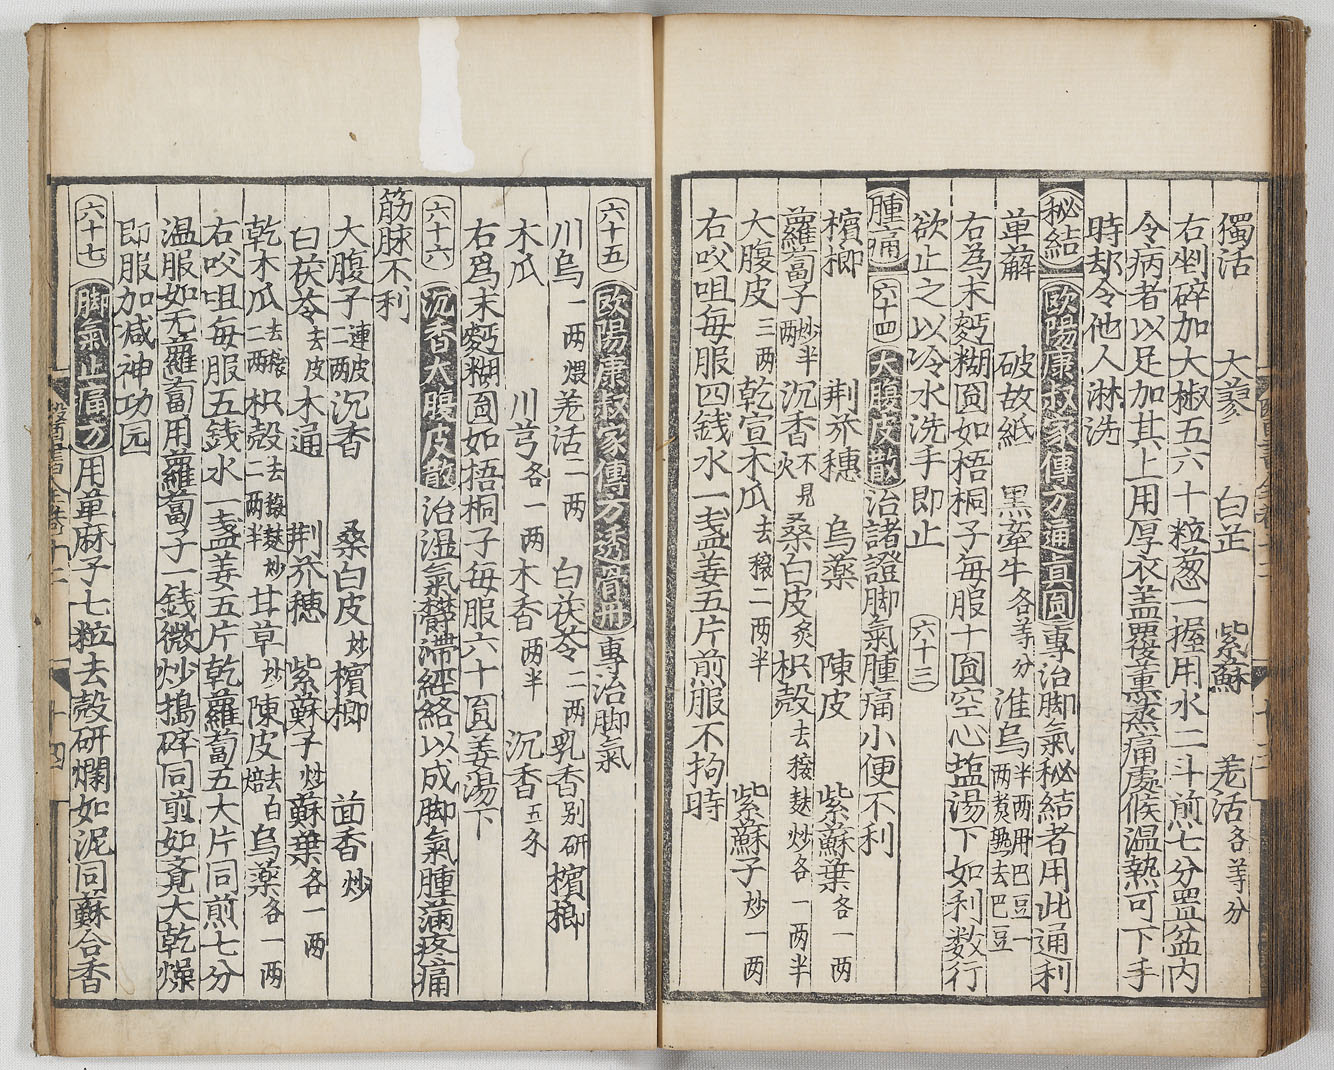 獨活 大蓼 白芷 紫蘇 羌活各等分
右剉碎加大椒五六十粒葱一握用水二斗煎七分置盆内
令病者以足加其上用厚衣盖覆薫蒸痛處候温熱可下手
時却令他人淋洗
秘結 欧陽康叔家傳方通眞圎 專治脚氣秘結者用此通利
萆薢 破故紙 黒牽牛各等分 淮烏半两用巴豆一两煑熟去巴豆
右為末麪糊圎如梧桐子每服十圎空心塩湯下如利数行
欲止之以冷水洗手即止 六十三
腫痛 六十四 大腹皮散 治諸證脚氣腫痛小便不利
檳榔 荆芥穗 烏藥 陳皮 紫蘇葉各一两
蘿蔔子炒半两 沉香不見火 桑白皮炙 枳殻去穣麸炒各一两半
大腹皮三两 乾宣木瓜去穣二两半 紫蘇子炒一两
右㕮咀每服四錢水一盏姜五片煎服不拘時
六十五 欧陽康叔家傳方透骨丹 專治脚氣
川烏一两煨 羌活二两 白茯苓二两 乳香别研 檳榔
木瓜 川芎各一两 木香两半 沉香五分
右爲末麪糊圎如梧桐子每服六十圎姜湯下
六十六 沉香大腹皮散 治湿氣欝滯經絡以成脚氣腫滿疼痛
筋脉不利
大腹子連皮二两 沉香 桑白皮炒 檳榔 茴香炒
白茯苓去皮 木通 荆芥穗 紫蘇子炒 蘇葉各一两
乾木瓜去穣二两 枳殻去穣麸炒二两半 甘草炒 陳皮去白焙 烏藥各一两
右㕮咀每服五錢水一盏姜五片乾蘿蔔五大片同煎七分
温服如无蘿蔔用蘿蔔子一錢微炒搗碎同煎如覔大乾燥
即服加减神功圎
六十七 脚氣止痛方 用萆麻子七粒去殻研爛如泥同蘇合香